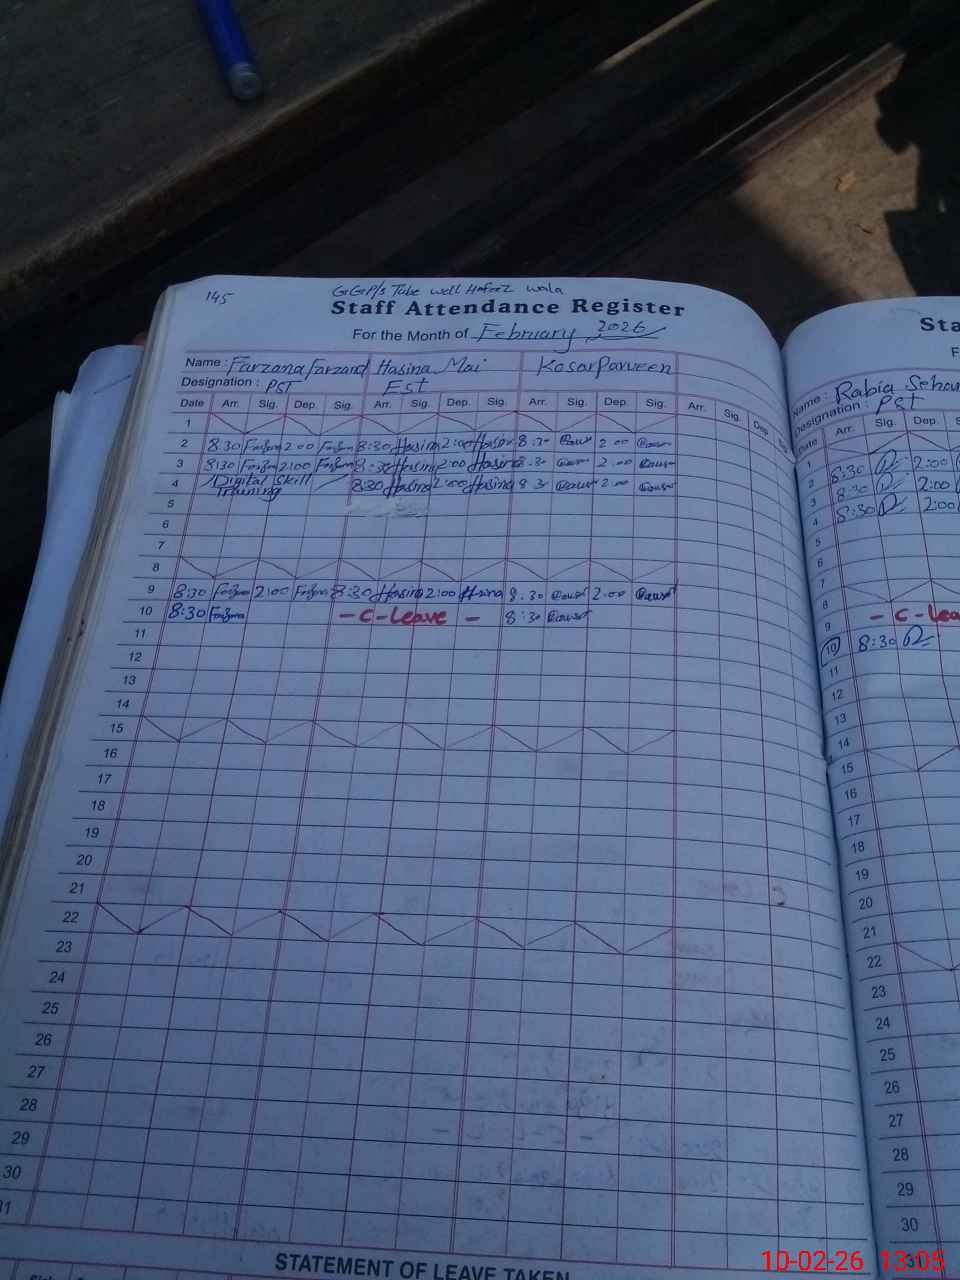 145
GGP/s Tube well Hafeez wala
Staff Attendance Register
For the Month of February 2026
Name : Farzana Farzand Hasina Mai Kosar Parveen
Designation : PST Est
Date Arr. Sig. Dep. Sig. Arr. Sig. Dep. Sig. Arr. Sig. Dep. Sig. Arr. Sig. Dep.
1
2 8:30 2:00 8:30 Hasina 2:00 Hasina 8:30 2:00
3 8:30 2:00 8:30 Hasina 2:00 Hasina 8:30 2:00
4 Digital Skill Training 8:30 Hasina 2:00 Hasina 8:30 2:00
5
6
7
8
9 8:30 2:00 8:30 Hasina 2:00 Hasina 8:30 2:00
10 8:30 - C-Leave - 8:30
11
12
13
14
15
16
17
18
19
20
21
22
23
24
25
26
27
28
29
30
31
STATEMENT OF LEAVE TAKEN
Sta
F
Name : Rabia Sehar
Designation : PST
Date Arr. Sig. Dep. S
1
2 8:30 2:00
3 8:30 2:00
4 8:30 2:00
5
6
7
8
9 - C-Lea
10 8:30
11
12
13
14
15
16
17
18
19
20
21
22
23
24
25
26
27
28
29
30
31
10-02-26 13:05